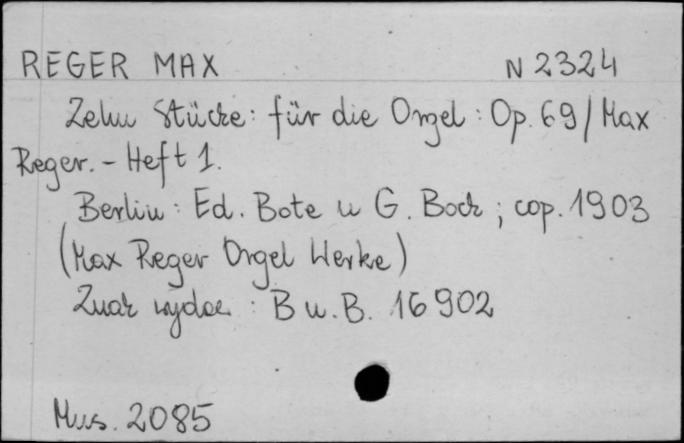 REGER MAX N 2324
Zehn Stücke: für die Orgel: Op. 69/Max
Reger. - Heft 1.
Berlin: Ed. Bote u G. Bock; cop. 1903
(Max Reger Orgel Werke)
Znak wydaw: B u. B. 16 902
Mus. 2085